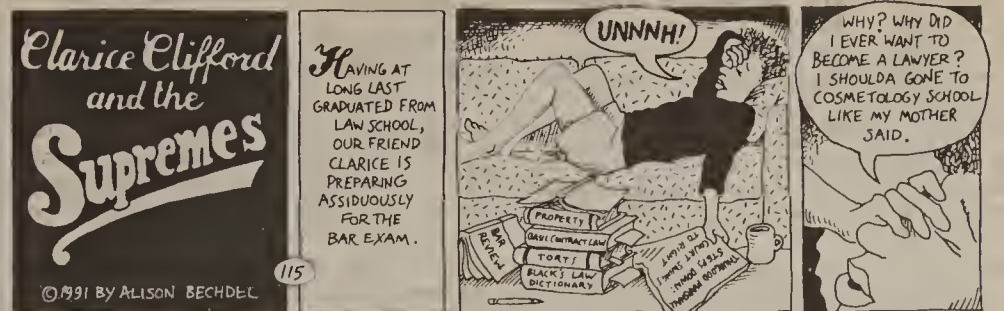 Clarice Clifford
and the
Supremes
©1991 BY ALISON BECHDEL
115
HAVING AT
LONG LAST
GRADUATED FROM
LAW SCHOOL,
OUR FRIEND
CLARICE IS
PREPARING
ASSIDUOUSLY
FOR THE
BAR EXAM.
UNNNH!
BAR
REVIEW
PROPERTY
BASIC CONTRACT LAW
TORTS
BLACK'S LAW
DICTIONARY
THURGOOD MARSHALL
STEPS DOWN:
COURT SWINGS
TO RIGHT
WHY? WHY DID
I EVER WANT TO
BECOME A LAWYER?
I SHOULDA GONE TO
COSMETOLOGY SCHOOL
LIKE MY MOTHER
SAID.